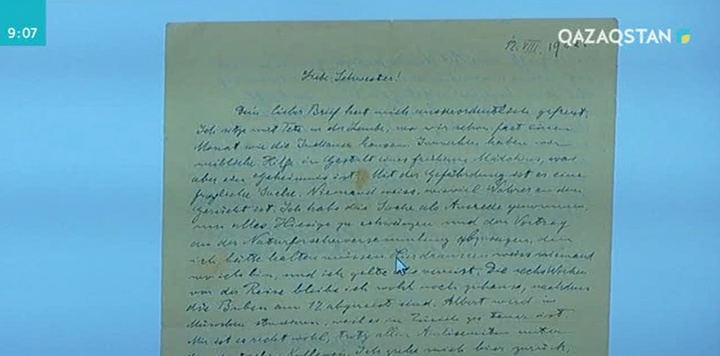 9:07
QAZAQSTAN
12. VIII. 1922.
Liebe Schwester!
Dein lieber Brief hat mich ausserordentlich gefreut.
Ich sitze mit Tete in der Laube, wo wir schon fast einen
Monat wie die Indianer hausen. Inzwischen haben wir
weibliche Hilfe in Gestalt eines früheren Mädchens, was
aber ein Geheimnis ist. Mit der Gefährdung ist es eine
fragliche Sache. Niemand weiss, wieviel Wahres an dem
Gerücht ist. Ich habe die Sache als Ausrede genommen,
um alles Hiesige zu schwänzen und den Vortrag
an der Naturforscherversammlung abzusagen, den
ich hätte halten müssen. Hier draussen weiss niemand
wo ich bin, und ich gelte als verreist. Die sechs Wochen
vor der Reise bleibe ich wohl noch zuhause, nachdem
die Buben am 17. abgereist sind. Albert wird in
München studieren, weil es in Zürich zu teuer ist.
Mir ist es recht wohl, trotz aller Antisemiten unter
Ich mich hier zurück,